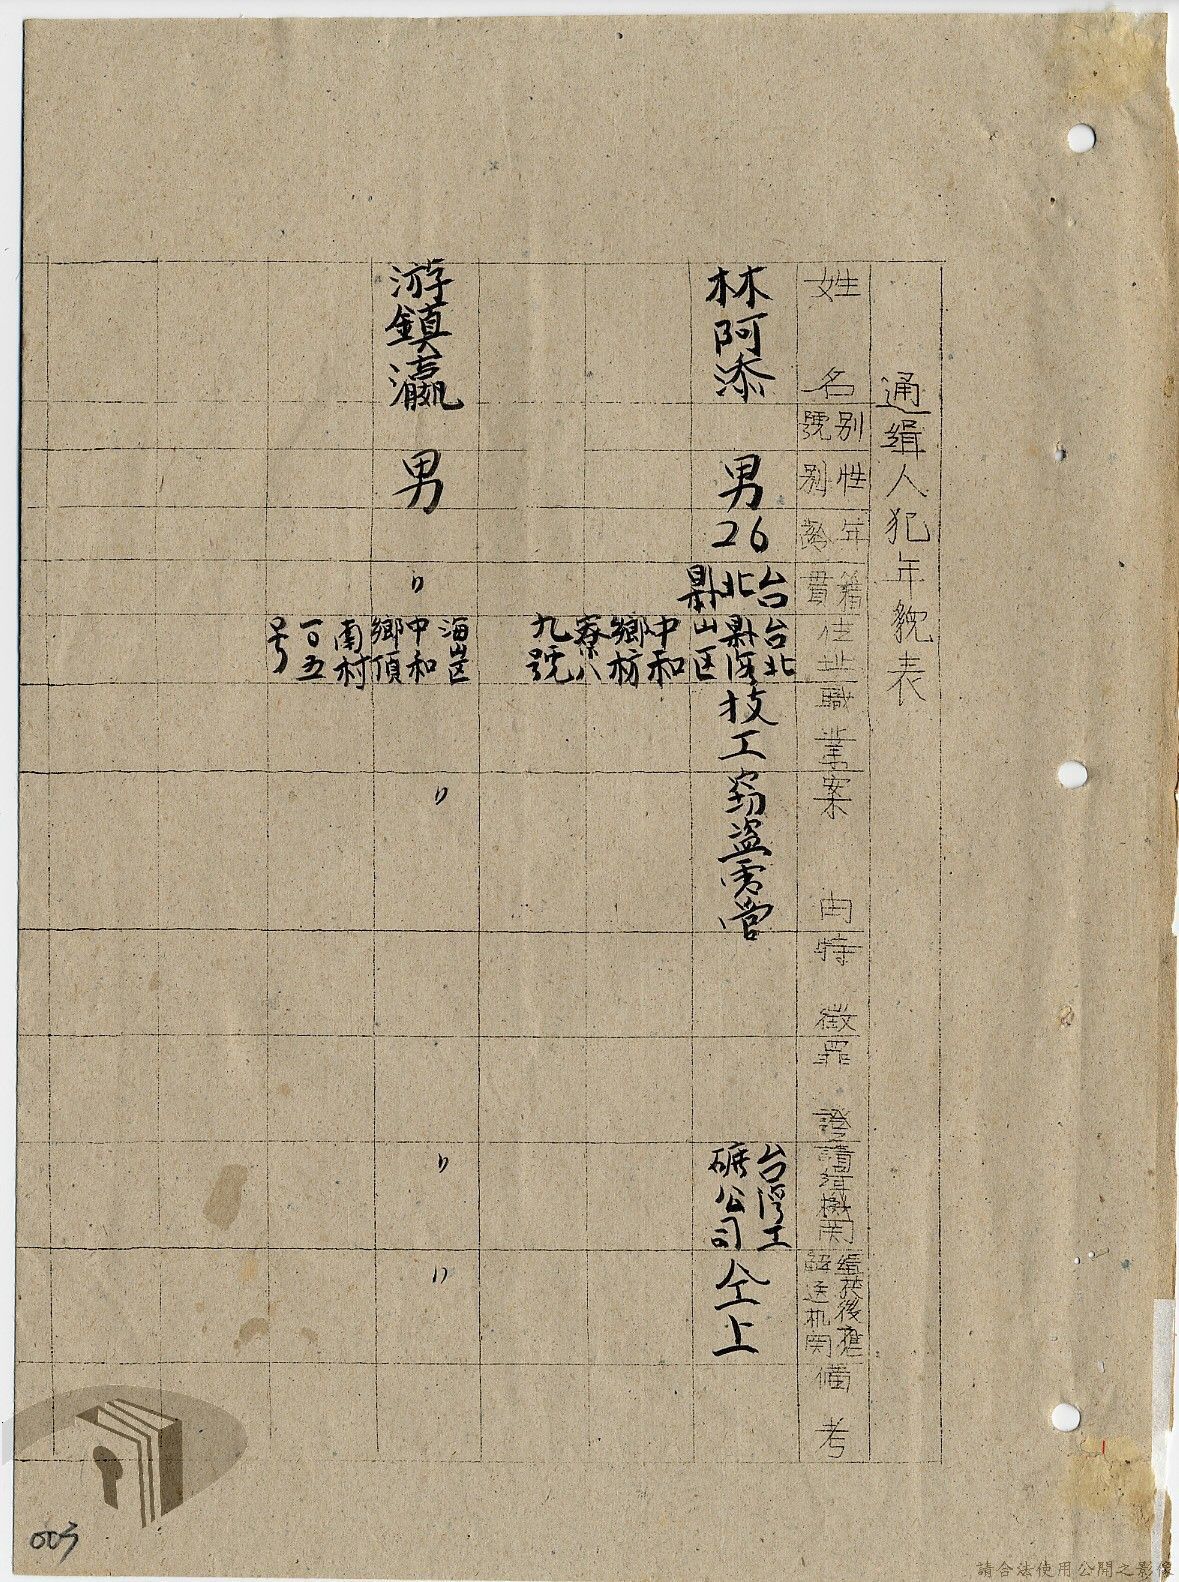 通緝人犯年貌表
姓名
別號
性別
年齡
籍貫
住址
職業
案由
特徵
罪證
請緝機関
緝获後應
解送机関
備考
林阿添
男
26
台北縣
台北
縣海
山区
中和
鄉枋
寮八
九號
技工
窃盗電管
台灣工
礦公司
仝上
游鎮瀛
男
〃
海山区
中和
鄉頂
南村
一〇五
号
〃
〃
〃
003
請合法使用公開之影像